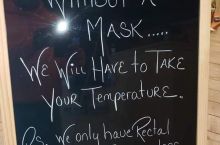 Without A
Mask.....
We Will Have to Take
Your Temperature.
Ps. We only have Rectal